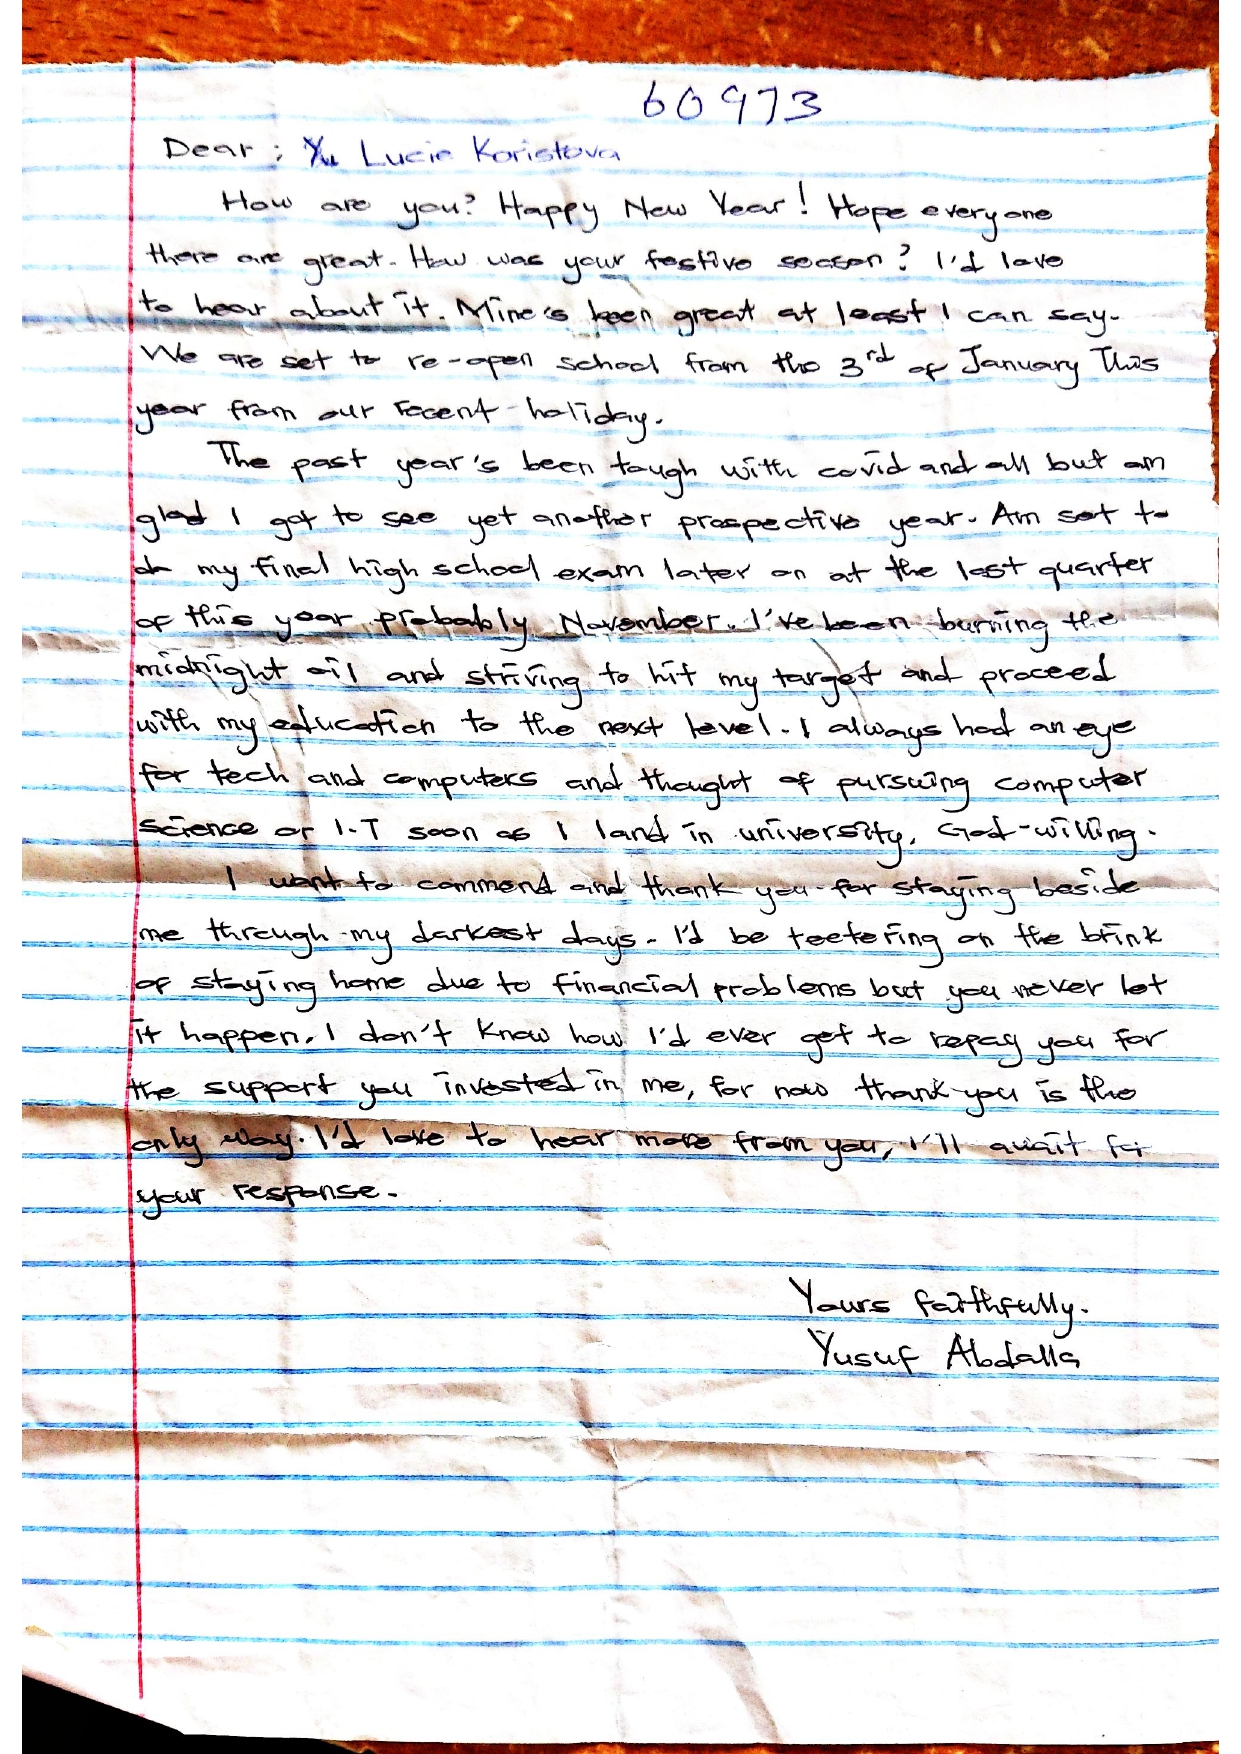 60973
Dear ; Lucie Koristova
How are you? Happy New Year! Hope everyone
there are great. How was your festive season? I'd love
to hear about it. Mine's been great at least I can say.
We are set to re-open school from the 3rd of January This
year from our recent holiday.
The past year's been tough with covid and all but am
glad I got to see yet another prospective year. Am set to
do my final high school exam later on at the last quarter
of this year probably November. I've been burning the
midnight oil and striving to hit my target and proceed
with my education to the next level. I always had an eye
for tech and computers and thought of pursuing computer
science or I.T soon as I land in university, God-willing.
I want to commend and thank you for staying beside
me through my darkest days. I'd be teetering on the brink
of staying home due to financial problems but you never let
it happen. I don't know how I'd ever get to repay you for
the support you invested in me, for now thank you is the
only way. I'd love to hear more from you, I'll await for
your response.
Yours faithfully.
Yusuf Abdalla